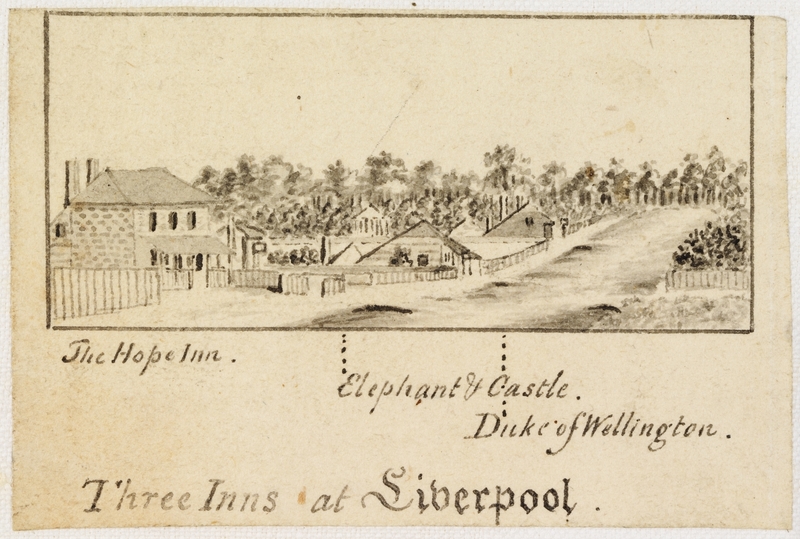 The Hope Inn.
Elephant & Castle.
Duke of Wellington.
Three Inns at Liverpool.